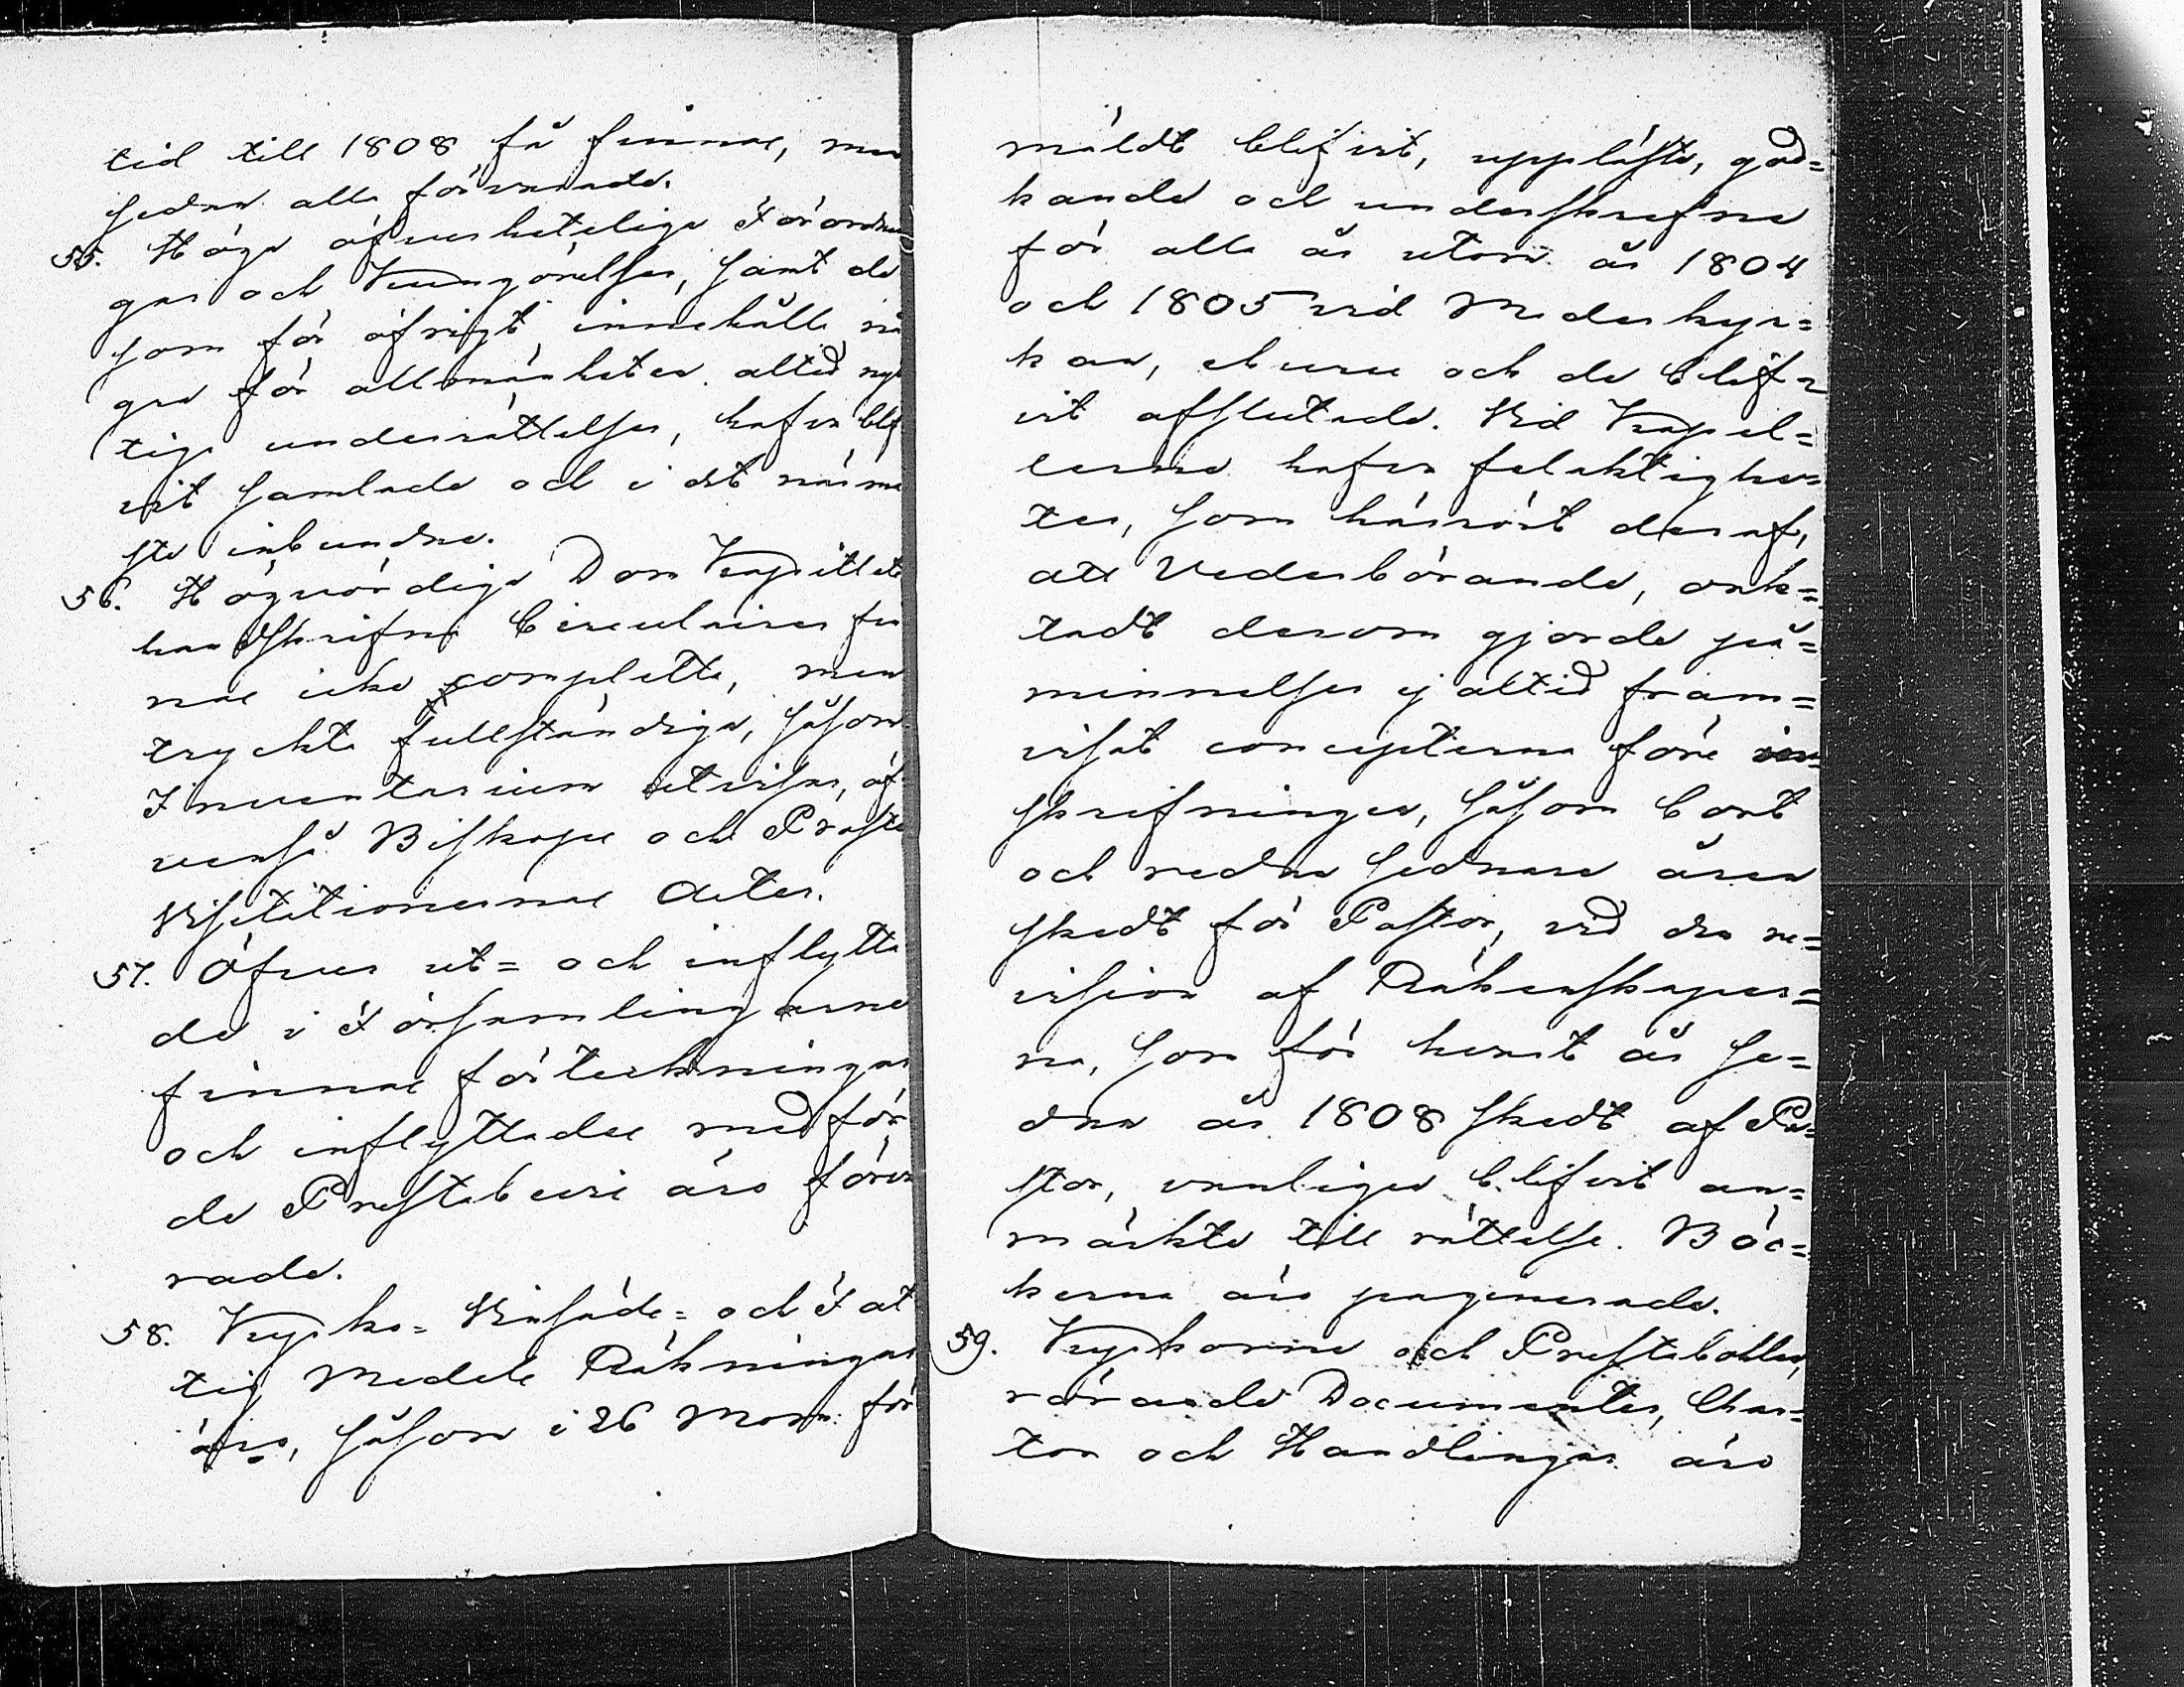 tid till 1808 få finnas, men
sedan alla förvarade.
55. Höga öfverhetelige Förordnin
gar och Kungörelser, samt de
som för öfrigt innehålla nå
gra för allmänheten altid nyt
tiga underrättelser, hafva blif
vit samlade och i det närma
ste inbundne.
56. Högvördige Dom Kapitlets
handskrifna Circulairer fin
nas icke complette, men
tryckte fullständiga, såsom
Inventarium utvisar, äf
venså Biskops och Prosta
Visitationernas Acter.
57. Öfver ut= och inflytta
de i Församlingarne
finnas förteckningar
och inflyttades medför
de Prestabevis äro förva
rade.
58. Kyrko= Kinfäde= och Fat
tig Medels Räkningar
äro, såsom i 26 Mom: för
mäldt blifvit, uppläste, god=
kände och underskrefne
för alla år utom år 1804
och 1805 vid Moderkyr=
kan, ehuru och de blif=
vit afslutade. Vid Kapel=
lerne hafva felaktighe=
ter, som härrört deraf,
att Vederbörande, oak=
tadt derom gjorde på=
minnelser ej altid fram=
visat concepterna före in=
skrifningen, såsom bort
och nedan sednare åren
skedt för Pastor, vid den re=
vision af Räkenskaper=
na, som för hvart år se=
dan år 1808 skedt af Pa=
stor, vanligen blifvit an=
märkte till rättelse. Böc=
kerna äro paginerade.
59. Kyrkorne och Prestabollen
rörande Documenter, Char=
tor och Handlingar äro